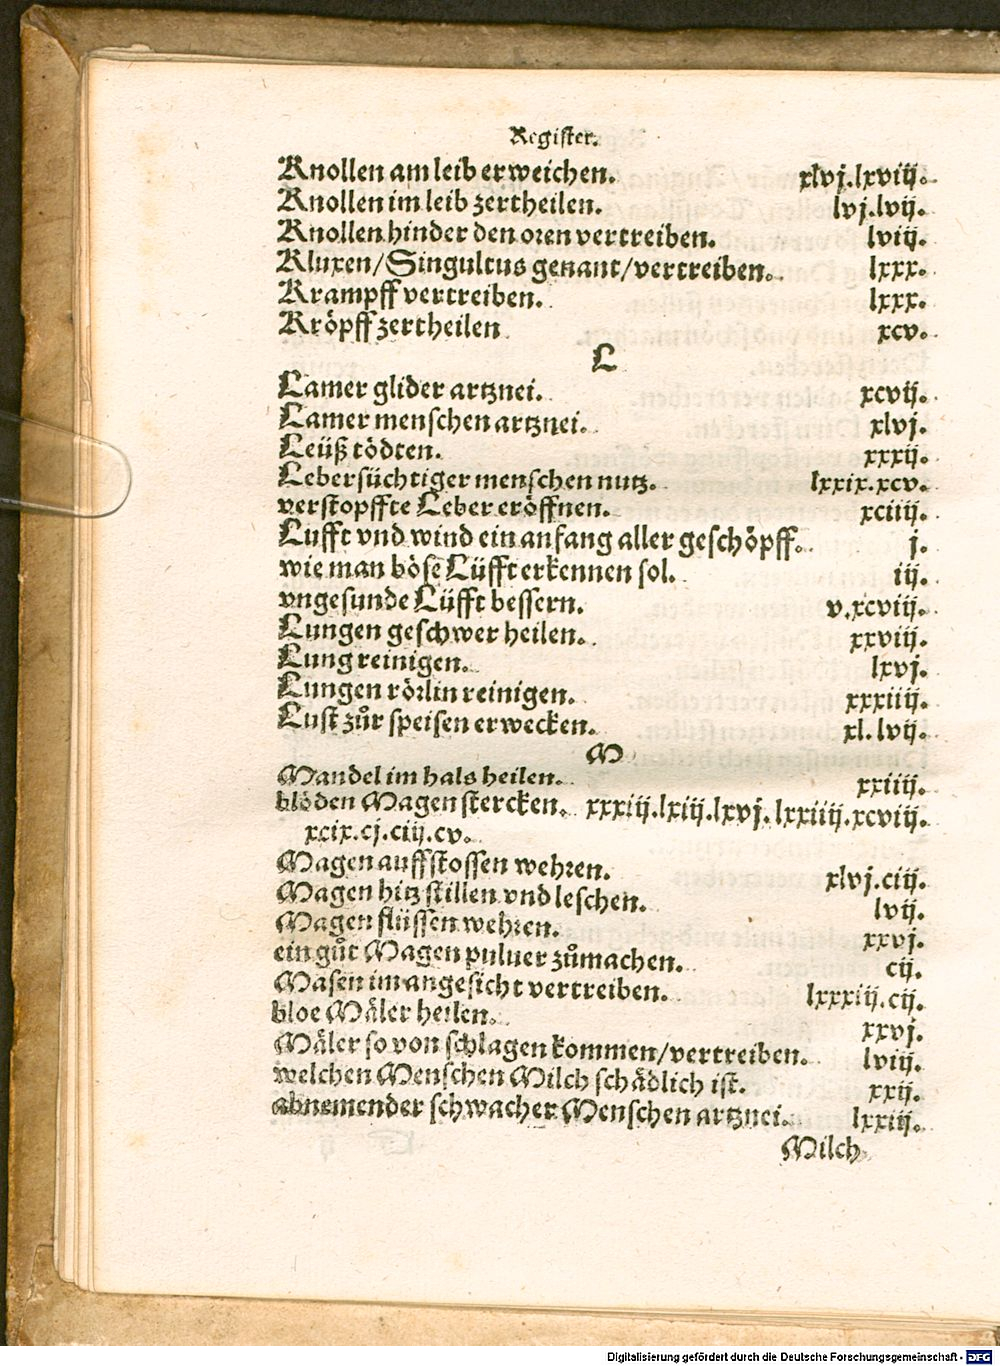 Register.
Knollen am leib erweichen. xlvj.lxviij.
Knollen im leib zertheilen. lvj.lvij.
Knollen hinder den oren vertreiben. lviij.
Kluxen/Singultus genant/vertreiben. lxxx.
Krampff vertreiben. lxxx.
Kröpff zertheilen xcv.
L
Lamer glider artznei. xcvij.
Lamer menschen artznei. xlvj.
Leüß tödten. xxxij.
Lebersüchtiger menschen nutz. lxxix.xcv.
verstopffte Leber eröffnen. xciiij.
Lufft vnd wind ein anfang aller geschöpff. j.
wie man böse Lüfft erkennen sol. iij.
vngesunde Lüfft bessern. v.xcviij.
Lungen geschwer heilen. xxviij.
Lung reinigen. lxvj.
Lungen rörlin reinigen. xxxiiij.
Lust zůr speisen erwecken. xl.lvij.
M
Mandel im hals heilen. xxiiij.
blöden Magen stercken. xxxiij.lxiij.lxvj.lxxiiij.xcviij.
xcix.cj.ciij.cv.
Magen auffstossen wehren. xlvj.ciij.
Magen hitz stillen vnd leschen. lvij.
Magen flüssen wehren. xxvj.
ein gůt Magen puluer zůmachen. cij.
Masen im angesicht vertreiben. lxxxiij.cij.
bloe Mäler heilen. xxvj.
Mäler so von schlagen kommen/vertreiben. lviij.
welchen Menschen Milch schädlich ist. xxij.
abnemender schwacher Menschen artznei. lxxiij.
Milch
Digitalisierung gefördert durch die Deutsche Forschungsgemeinschaft - DFG